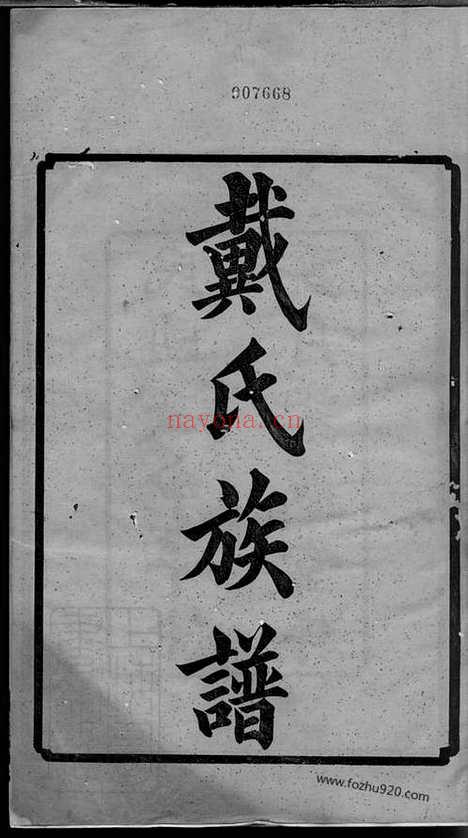 907668
戴氏族譜
nayona.cn
www.fozhu920.com